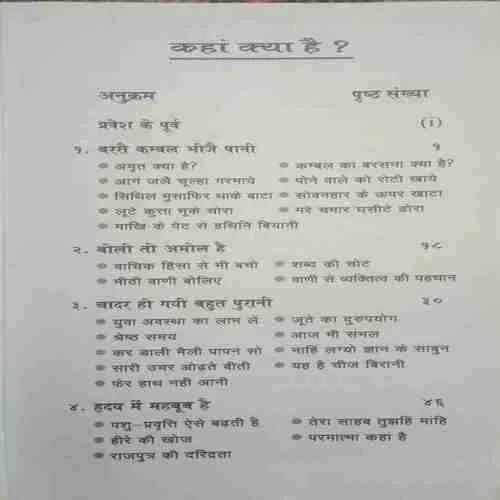 कहां क्या है ?
अनुक्रम पृष्ठ संख्या
प्रवेश के पूर्व (i)
१. बरसै कम्बल भीजै पानी १
* अमृत क्या है? * कम्बल का बरसना क्या है?
* आग जलै चूल्हा गरमाये * पोने वाले को रोटी खाये
* सिथिल मुसाफिर थाके बाटा * सोवनहार के ऊपर खाटा
* लूटे कुत्ता भूके चोरा * मरे चमार घसीटे ढोरा
* माखि के पेट से हथिनि बियानी
२. बोली तो अमोल है १८
* वाचिक हिंसा से भी बचो * शब्द की चोट
* मीठी वाणी बोलिए * वाणी से व्यक्तित्व की पहचान
३. चादर हो गयी बहुत पुरानी ३०
* युवा अवस्था का लाभ लें * जूते का दुरुपयोग
* श्रेष्ठ समय * आज भी संभल
* कर डाली मैली पापन सो * नाहिं लग्यो ज्ञान के साबुन
* सारी उमर ओढ़ते बीती * यह है चीज बिरानी
* फेर हाथ नहीं आनी
४. हृदय में महबूब है ४६
* पशु-प्रवृत्ति ऐसे बढ़ती है * तेरा साहब तुझहि मांहि
* हीरे की खोज * परमात्मा कहां है
* राजपुत्र की दरिद्रता